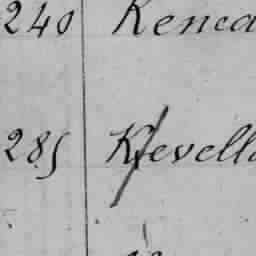 240 Kenca
285 Kevella